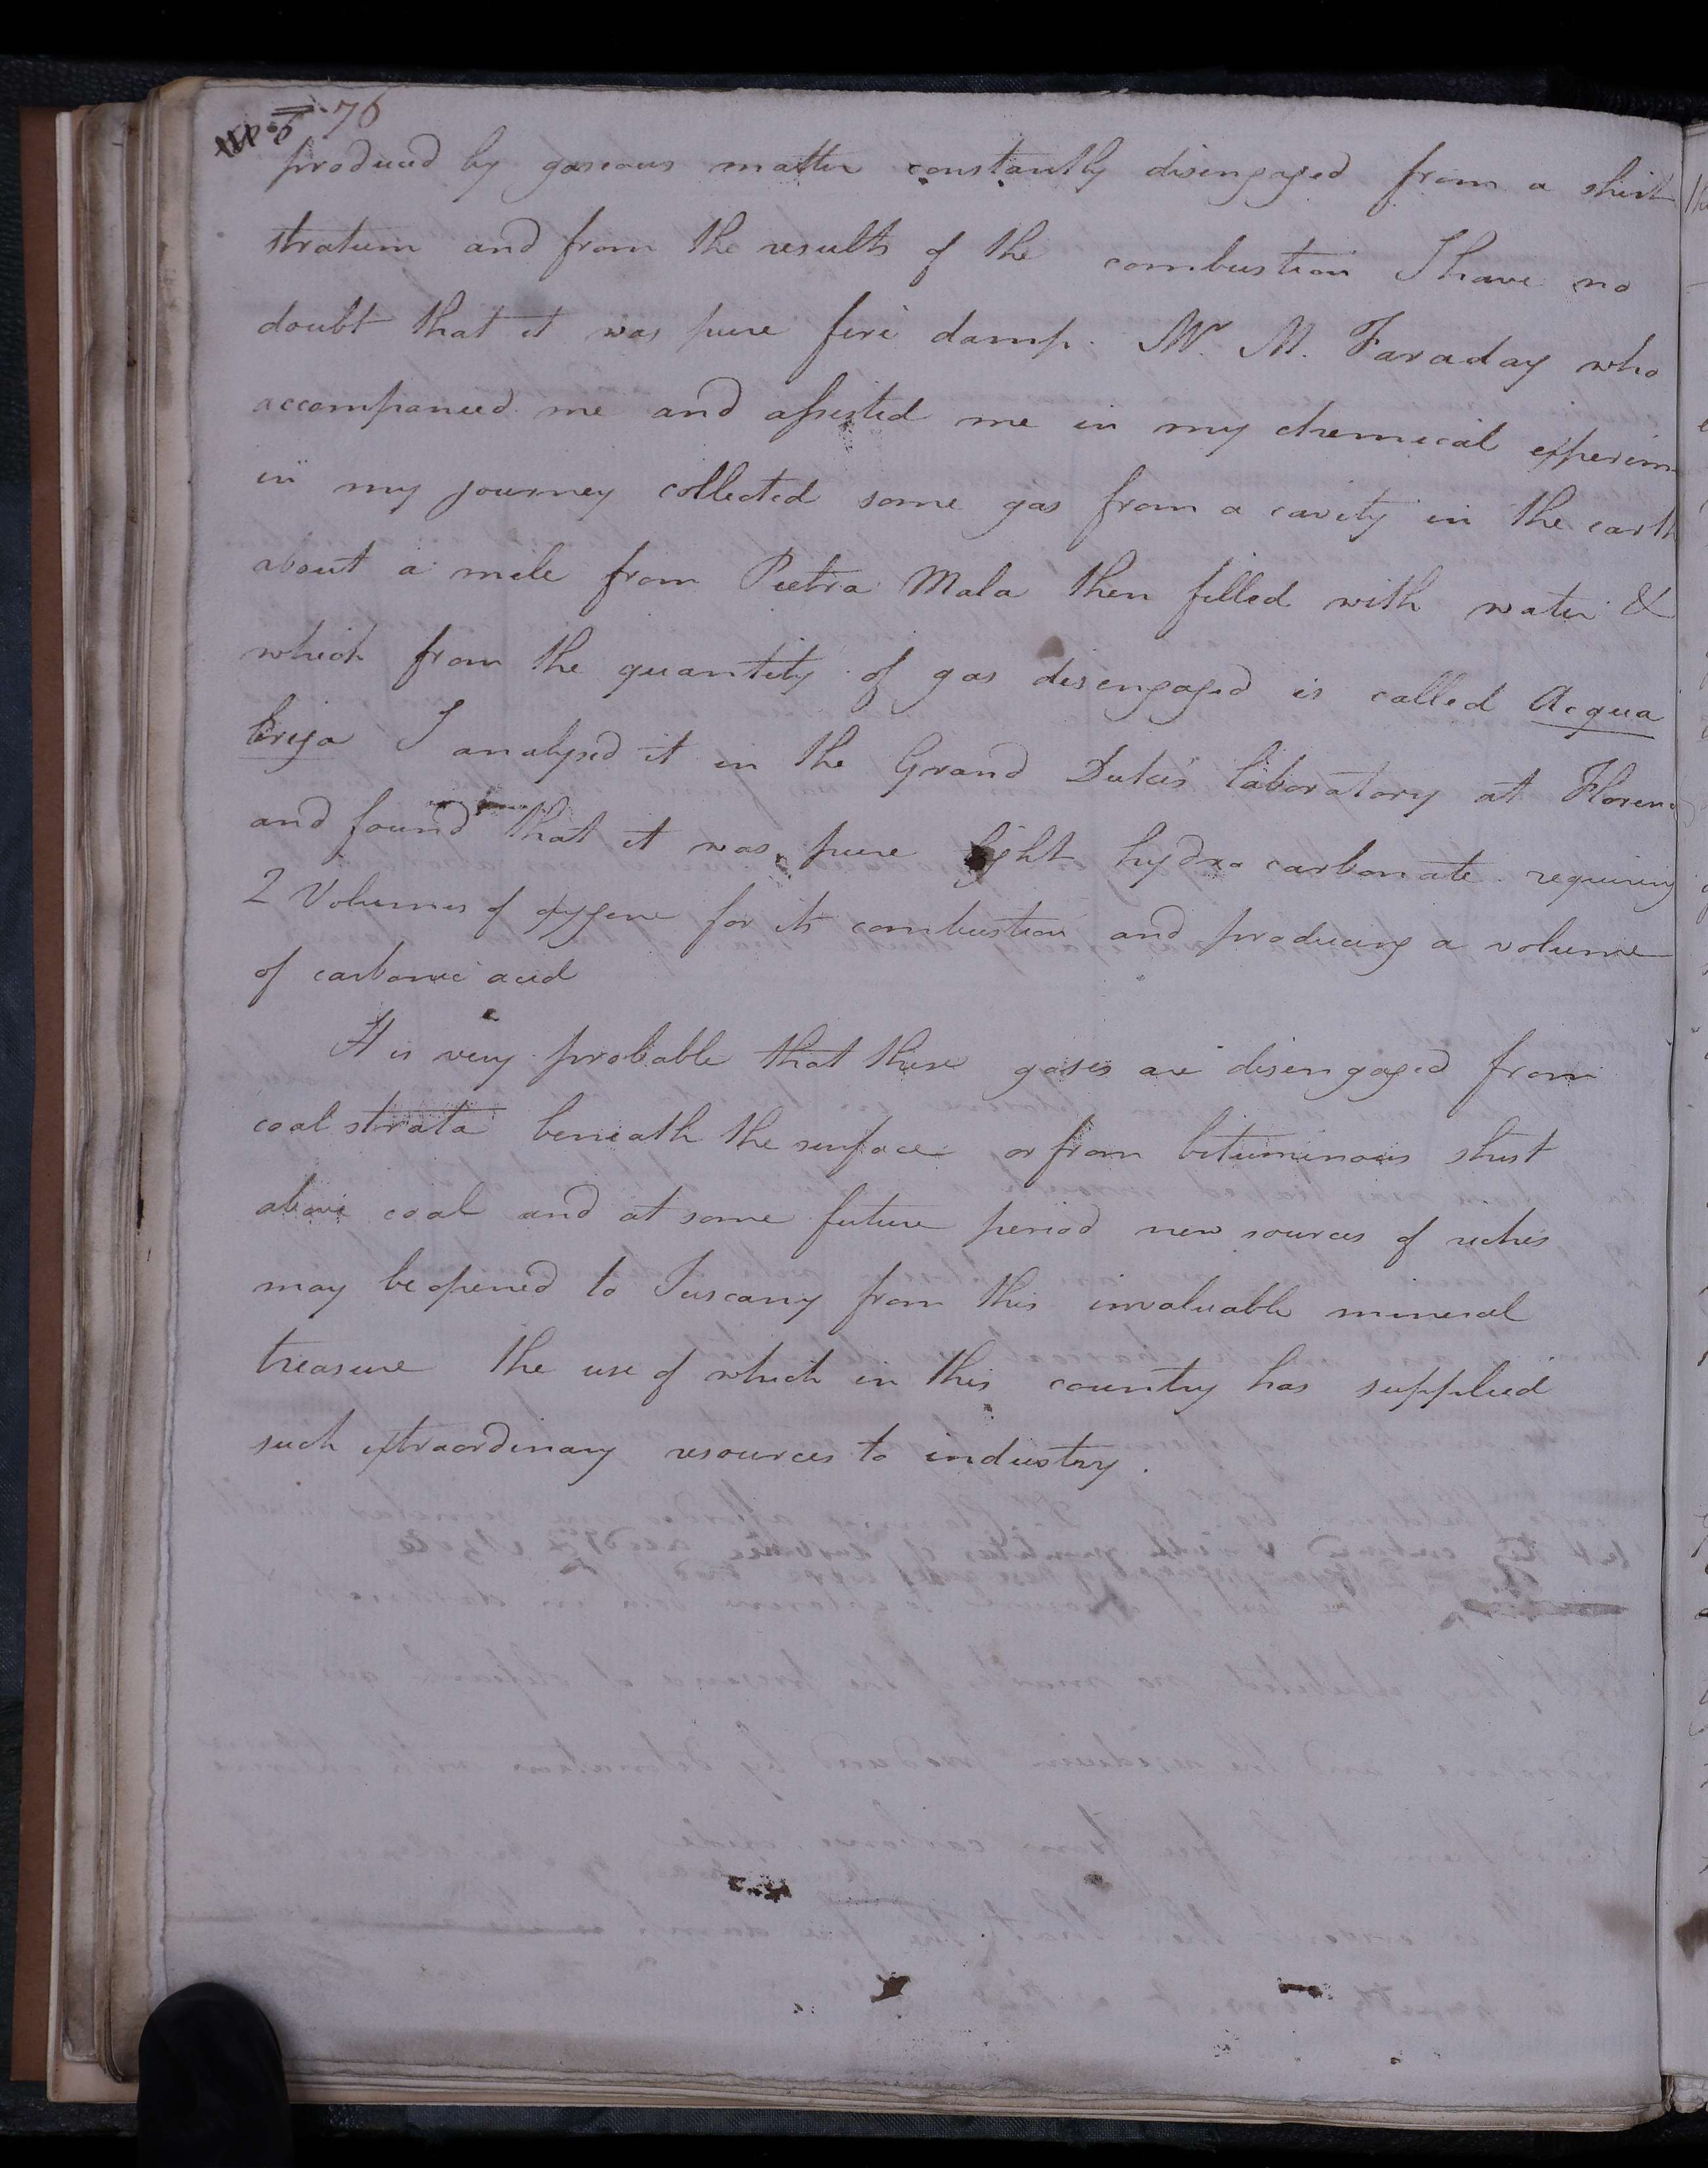 76
produced by gaseous matter constantly disengaged from a shist
stratum and from the results of the combustion I have no
doubt that it was pure fire damp. Mr. M. Faraday who
accompanied me and assisted me in my chemical experim
in my journey collected some gas from a cavity in the earth
about a mile from Pietra Mala then filled with water &
which from the quantity of gas disengaged is called Acqua
Briga I analysed it in the Grand Duke's laboratory at Floren
and found that it was pure light hydro carbonate requiring
2 Volumes of oxygene for its combustion and producing a volume
of carbonic acid
It is very probable that these gases are disengaged from
coal strata beneath the surface or from bituminous shist
above coal and at some future period new sources of riches
may be opened to Tuscany from this invaluable mineral
treasure the use of which in this country has supplied
such extraordinary resources to industry.